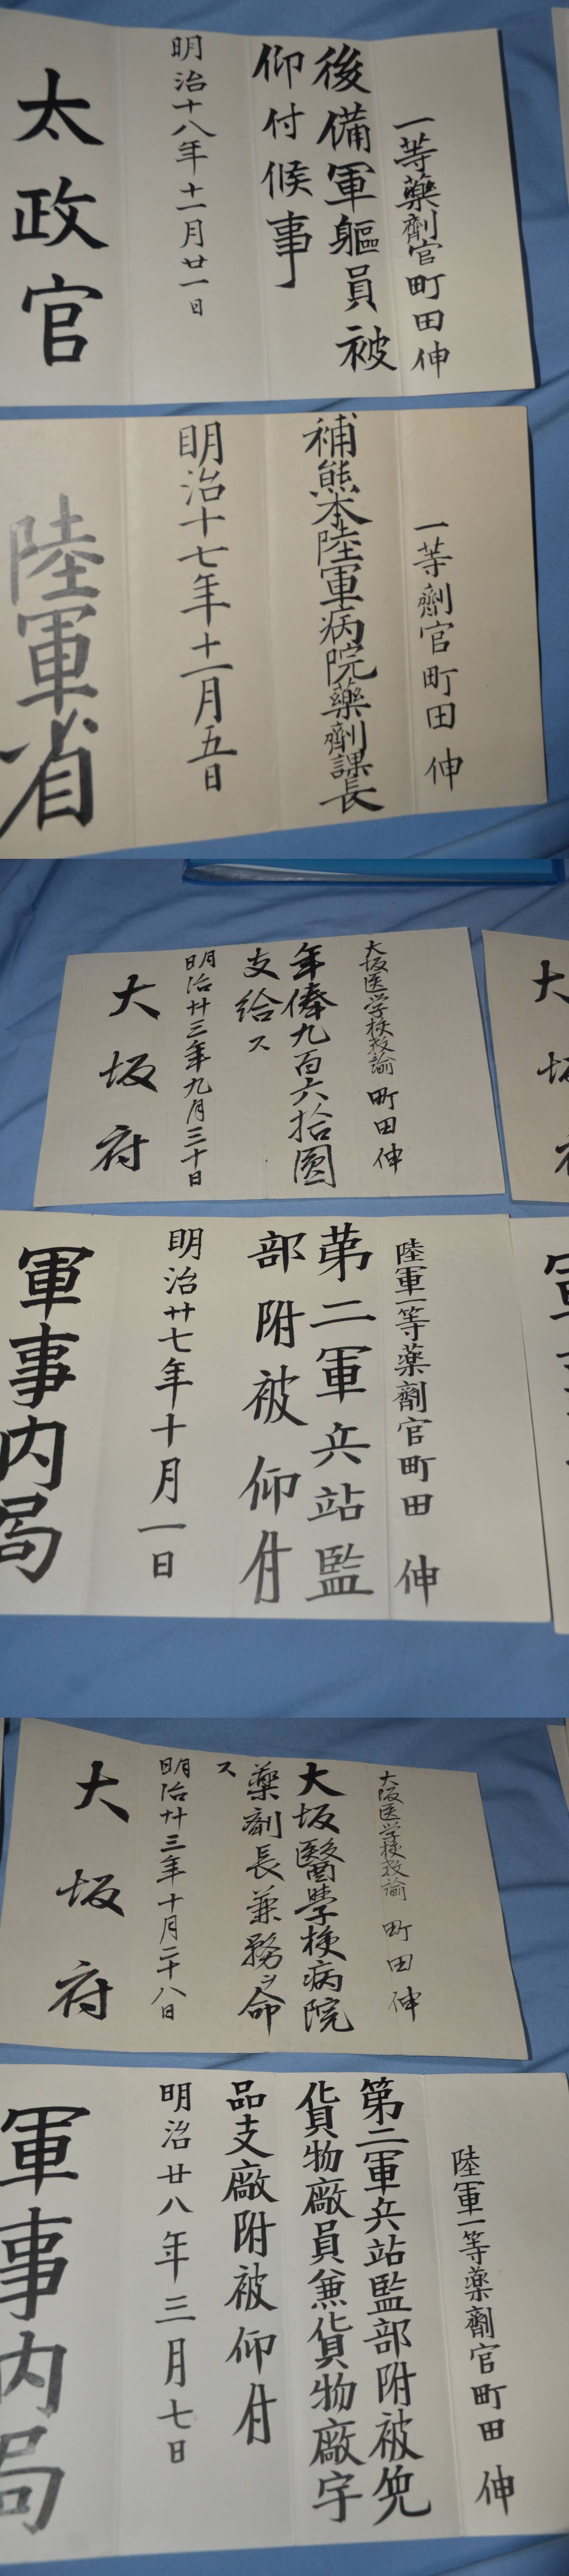 一等藥劑官町田伸
後備軍軀員被
仰付候事
明治十八年十一月廿一日
太政官
一等劑官町田伸
補熊本陸軍病院藥劑課長
明治十七年十一月五日
陸軍省
大坂医学校教諭 町田伸
年俸九百六拾圓
支給ス
明治廾三年九月三十日
大坂府
陸軍一等薬劑官町田伸
苐二軍兵站監
部附被仰付
明治廿七年十月一日
軍事内局
大坂医学校教諭 町田伸
大坂醫學校病院
藥劑長兼務ヲ命
ス
明治廾三年十月二十八日
大坂府
陸軍一等薬劑官町田伸
第二軍兵站監部附被免
貨物廠員兼貨物廠字
品支廠附被仰付
明治廿八年三月七日
軍事内局